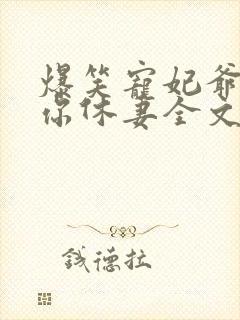 爆笑寵妃爺
你休妻全文
钱德拉